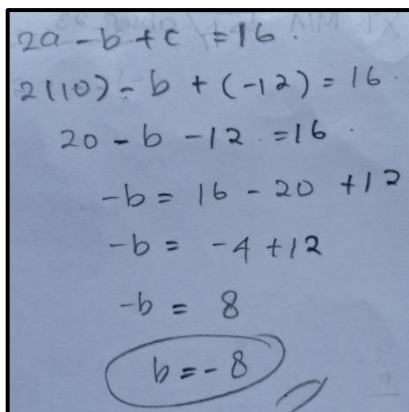 2a - b + c = 16.
2(10) - b + (-12) = 16.
20 - b - 12 = 16.
-b = 16 - 20 + 12
-b = -4 + 12
-b = 8
b = -8